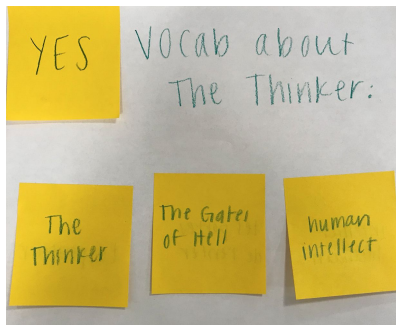 YES
Vocab about
The Thinker:
The
Thinker
The Gates
of Hell
human
intellect